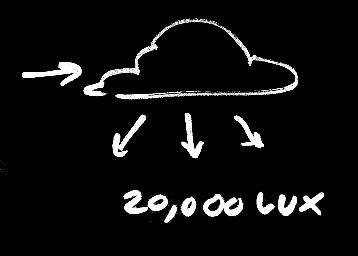 20,000 LUX